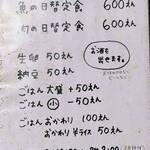 魚の日替定食 600えん
肉の日替定食 600えん
生卵 50えん
納豆 50えん
お酒も
出せます。
ごはん 大盛 +50えん
ごはん 小 -50えん
ごはん おかわり 100えん
おかわり 半ライス 50えん